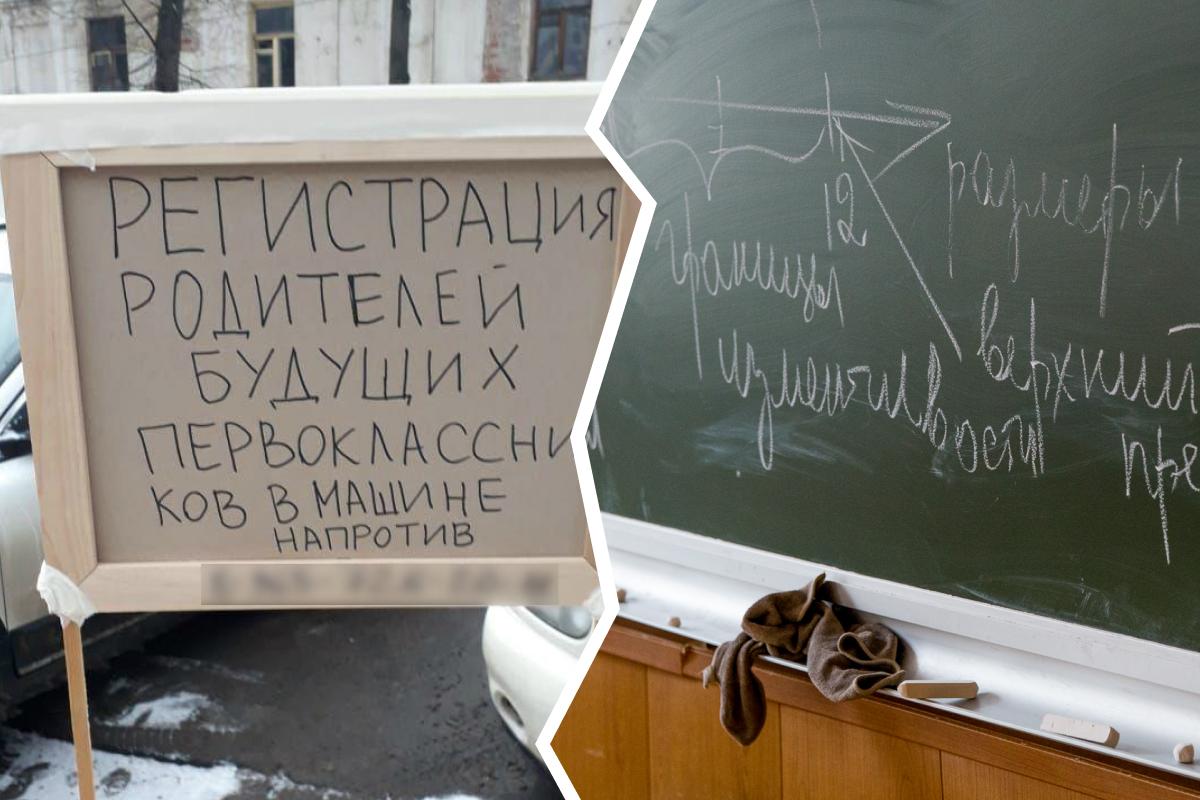 РЕГИСТРАЦИЯ
РОДИТЕЛЕЙ
БУДУЩИХ
ПЕРВОКЛАССНИ
КОВ В МАШИНЕ
НАПРОТИВ
12
размеры
границы
изменчивости
верхний